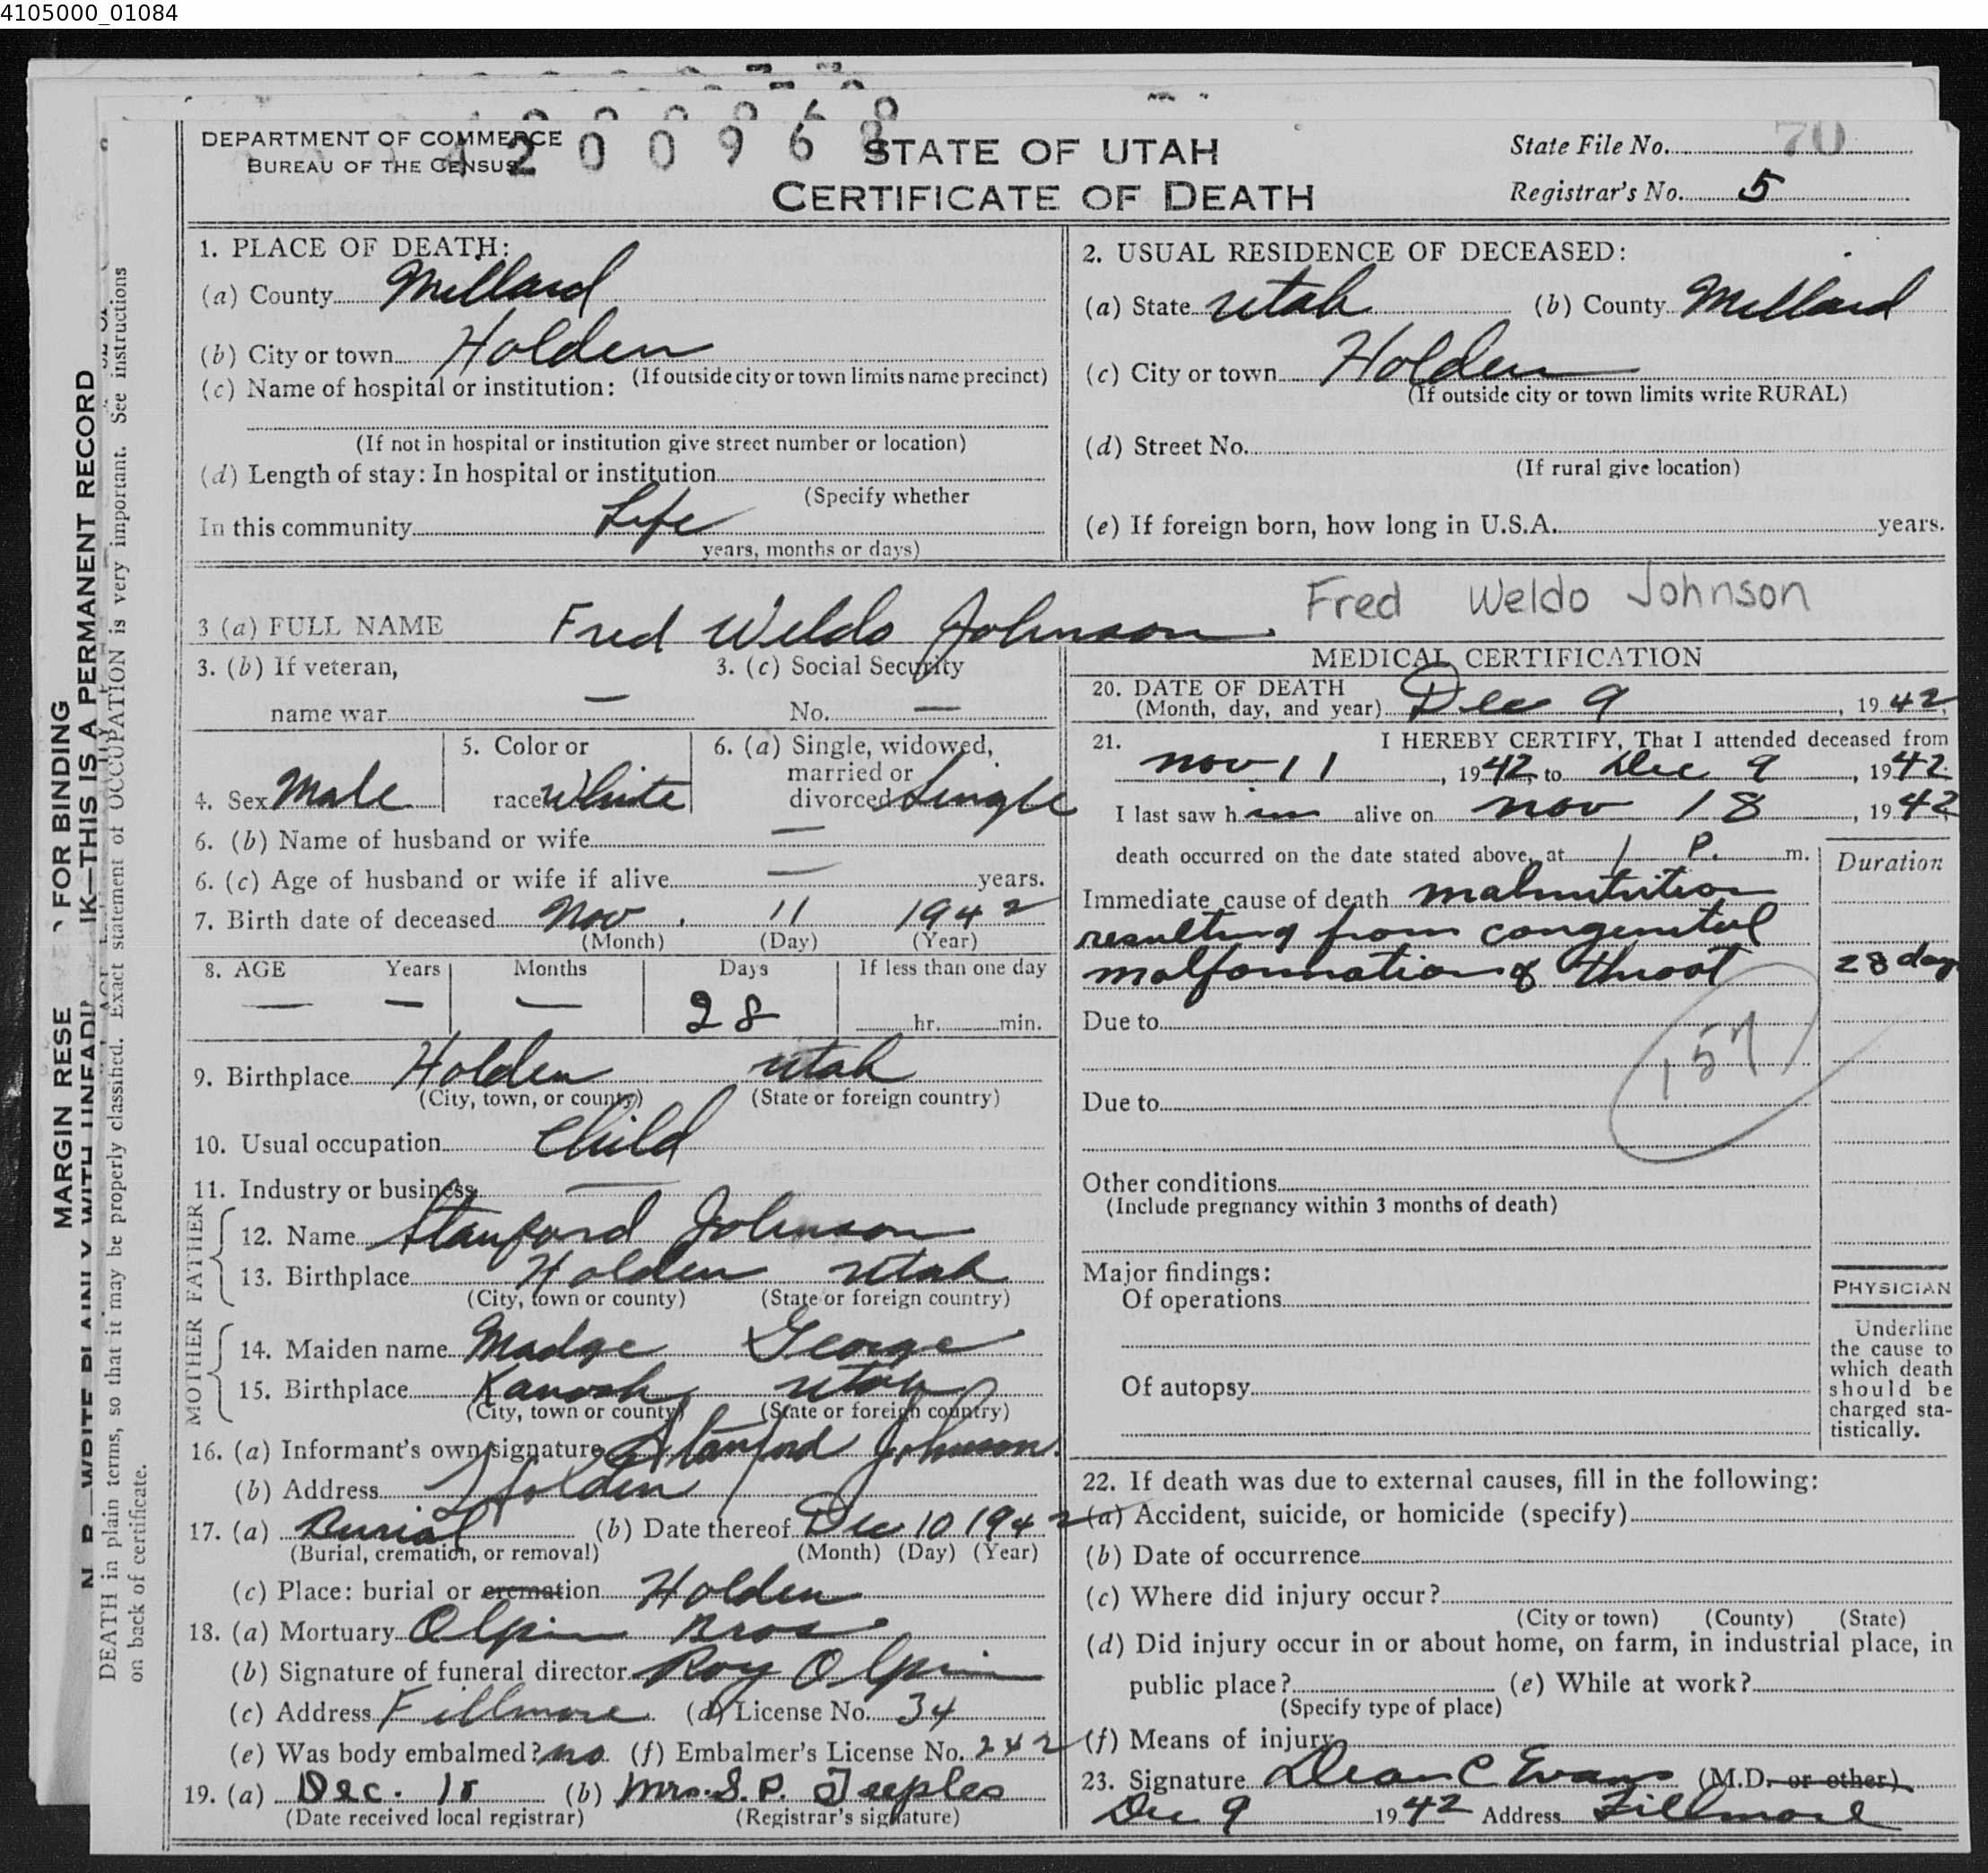 4105000_01084
DEPARTMENT OF COMMERCE
BUREAU OF THE CENSUS
4200968
STATE OF UTAH
CERTIFICATE OF DEATH
State File No. 70
Registrar's No. 5
1. PLACE OF DEATH:
(a) County Millard
(b) City or town Holden
(If outside city or town limits name precinct)
(c) Name of hospital or institution:
(If not in hospital or institution give street number or location)
(d) Length of stay: In hospital or institution
(Specify whether
In this community Life
years, months or days)
2. USUAL RESIDENCE OF DECEASED:
(a) State Utah (b) County Millard
(c) City or town Holden
(If outside city or town limits write RURAL)
(d) Street No.
(If rural give location)
(e) If foreign born, how long in U.S.A. years.
3 (a) FULL NAME Fred Weldo Johnson Fred Weldo Johnson
3. (b) If veteran, 3. (c) Social Security
name war — No. —
4. Sex Male
5. Color or
race White
6. (a) Single, widowed,
married or
divorced Single
6. (b) Name of husband or wife —
6. (c) Age of husband or wife if alive — years.
7. Birth date of deceased Nov. 11 1942
(Month) (Day) (Year)
8. AGE Years Months Days If less than one day
— — — 28 hr. min.
9. Birthplace Holden Utah
(City, town, or county) (State or foreign country)
10. Usual occupation Child
11. Industry or business —
FATHER
12. Name Stanford Johnson
13. Birthplace Holden Utah
(City, town or county) (State or foreign country)
MOTHER
14. Maiden name Madge George
15. Birthplace Kanosh Utah
(City, town or county) (State or foreign country)
16. (a) Informant's own signature Stanford Johnson.
(b) Address Holden
17. (a) Burial (b) Date thereof Dec 10 1942
(Burial, cremation, or removal) (Month) (Day) (Year)
(c) Place: burial or cremation Holden
18. (a) Mortuary Olpin Bros
(b) Signature of funeral director Roy Olpin
(c) Address Fillmore (d) License No. 34
(e) Was body embalmed? no (f) Embalmer's License No. 242
19. (a) Dec. (b) Mrs. S. P. Teeples
(Date received local registrar) (Registrar's signature)
MEDICAL CERTIFICATION
20. DATE OF DEATH
(Month, day, and year) Dec 9, 1942
21. I HEREBY CERTIFY, That I attended deceased from
Nov 11, 1942, to Dec 9, 1942
I last saw him alive on Nov 18, 1942
death occurred on the date stated above, at 1 P. m.
Duration
Immediate cause of death malnutrition
resulting from congenital
malformation of throat 28 day
Due to
157
Due to
Other conditions
(Include pregnancy within 3 months of death)
Major findings:
Of operations
Of autopsy
PHYSICIAN
Underline
the cause to
which death
should be
charged sta-
tistically.
22. If death was due to external causes, fill in the following:
(a) Accident, suicide, or homicide (specify)
(b) Date of occurrence
(c) Where did injury occur?
(City or town) (County) (State)
(d) Did injury occur in or about home, on farm, in industrial place, in
public place? (e) While at work?
(Specify type of place)
(f) Means of injury
23. Signature Dean C Evans (M.D. or other)
Dec 9 1942 Address Fillmore
MARGIN RESE FOR BINDING
N. B.—WRITE PLAINLY WITH UNFADIN IK—THIS IS A PERMANENT RECORD
DEATH in plain terms, so that it may be properly classified. Exact statement of OCCUPATION is very important. See instructions
on back of certificate.